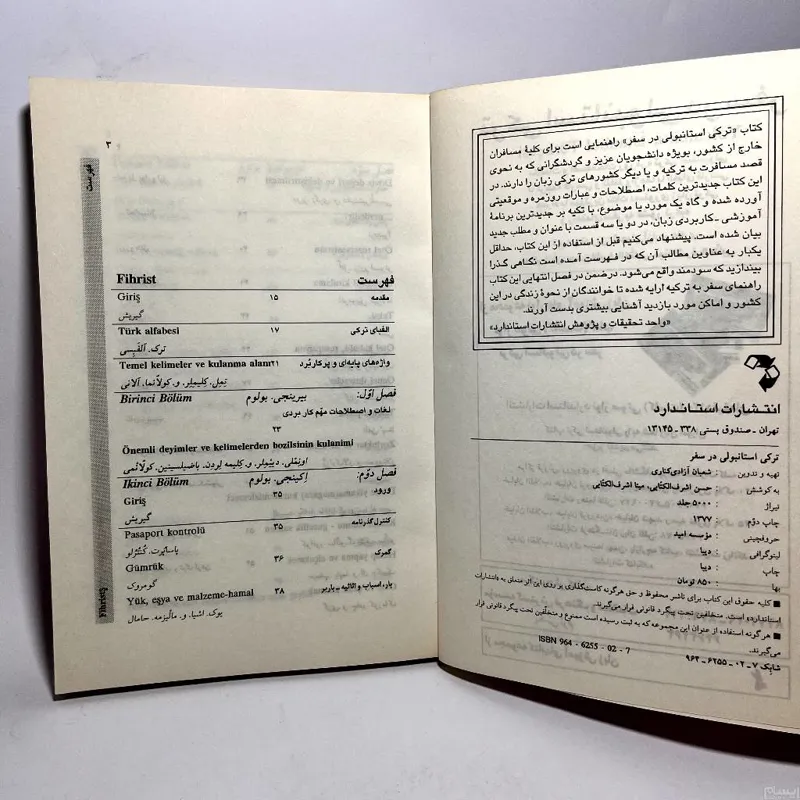 کتاب «ترکی استانبولی در سفر» راهنمایی است برای کلیهٔ مسافران
خارج از کشور، بویژه دانشجویان عزیز و گردشگرانی که به نحوی
قصد مسافرت به ترکیه و یا دیگر کشورهای ترکی زبان را دارند. در
این کتاب جدیدترین کلمات، اصطلاحات و عبارات روزمره و موقعیتی
آورده شده و گاه یک مورد یا موضوع، با تکیه بر جدیدترین برنامهٔ
آموزشی - کاربردی زبان، در دو یا سه قسمت با عنوان و مطلب جدید
بیان شده است. پیشنهاد می‌کنیم قبل از استفاده از این کتاب، حداقل
یکبار به عناوین مطالب آن که در فهرست آمده است نگاهی گذرا
بیندازید که سودمند واقع می‌شود. درضمن در فصل انتهایی این کتاب
راهنمای سفر به ترکیه ارایه شده تا خوانندگان از نحوهٔ زندگی در این
کشور و اماکن مورد بازدید آشنایی بیشتری بدست آورند.
«واحد تحقیقات و پژوهش انتشارات استاندارد»
انتشارات استاندارد
تهران - صندوق پستی ۳۳۸ - ۱۳۱۴۵
ترکی استانبولی در سفر
تهیه و تدوین : شعبان آزادی‌کناری
به کوشش : حسن اشرف‌الکتّابی، مینا اشرف‌الکتّابی
تیراژ : ۵۰۰۰ جلد
چاپ دوّم : ۱۳۷۷
حروفچینی : مؤسسه امید
لیتوگرافی : دیبا
چاپ : دیبا
بها : ۸۵۰ تومان
■ کلیه حقوق این کتاب برای ناشر محفوظ و حق هرگونه کاست‌گذاری بر روی این اثر متعلق به «انتشارات
استاندارد» است. متخلفین تحت پیگرد قانونی قرار می‌گیرند.
■ هرگونه استفاده از عنوان این مجموعه که به ثبت رسیده است ممنوع و متخلّفین تحت پیگرد قانونی قرار
می‌گیرند.
ISBN 964 - 6255 - 02 - 7
شابک ۷ - ۰۲ - ۶۲۵۵ - ۹۶۴
۳
فهرست
Fihrist فهرست
Giriş ۱۵ مقدمه
گیریش
Türk alfabesi ۱۷ الفبای ترکی
ترک. آلفبِسی
Temel kelimeler ve kulanma alanı ۲۱ واژه‌های پایه‌ای و پرکاربُرد
تِمِل. کلیمِلِر. و. کولانما. آلانی
Birinci Bölüm بیرینجی. بولوم فصل اوّل:
لغات و اصطلاحات مهّم کاربردی
۲۳
Önemli deyimler ve kelimelerden bozilsinin kulanimi
اونِملی. دییملِر. و. کلیمه لِردن. باضیلسینین. کولانمی
Ikinci Bölüm اِکینجی. بولوم فصل دوّم:
Giriş ۳۵ ورود
گیریش
Pasaport kontrolü ۳۵ کنترل گذرنامه
پاساپُرت. کُنتُرلو
Gümrük ۳۶ گمرک
گومروک
Yük, eşya ve malzeme-hamal ۳۸ بار، اسباب و اثاثیه - باربر
یوک. اشیا. و. مالیزمه. حامال
Fihrist
ایسام